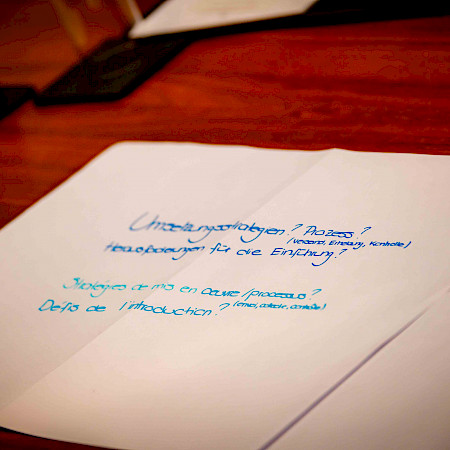 Umsetzungsstrategien? Prozess?
(Versand, Erhebung, Kontrolle)
Herausforderungen für die Einführung?
Stratégies de mis en oeuvre/processus?
Défis de l'introduction? (envoi, collecte, contrôle)